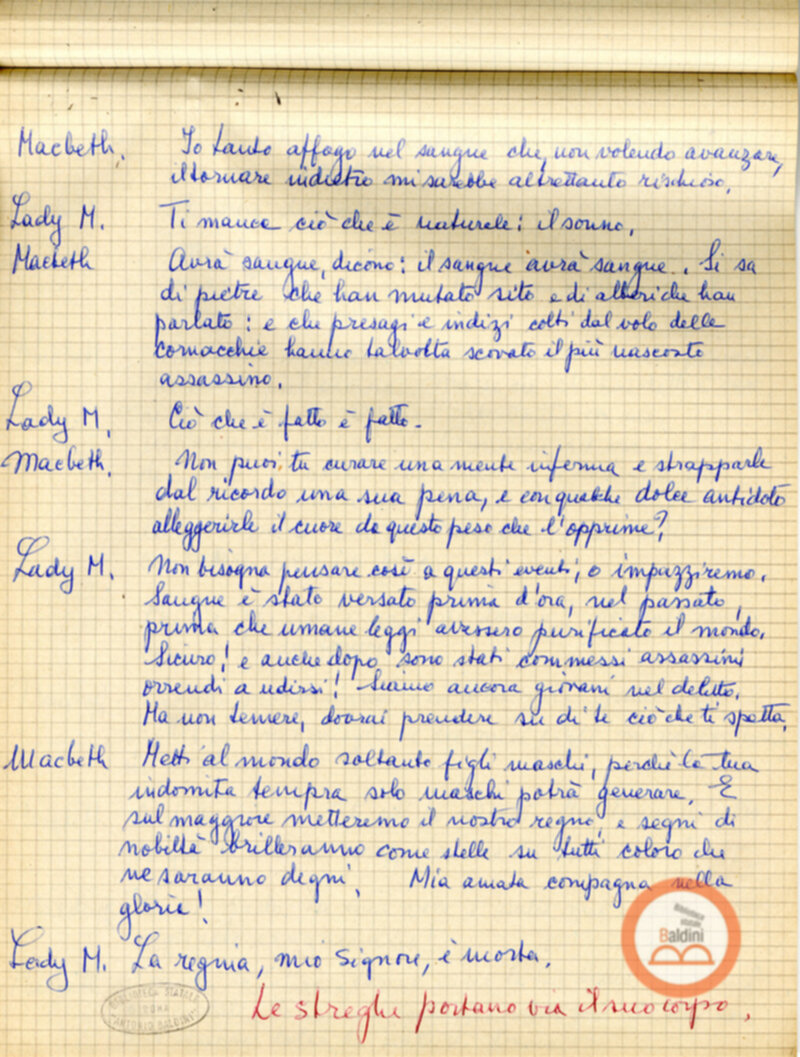 Macbeth. Io tanto affogo nel sangue che, non volendo avanzare,
il tornare indietro mi sarebbe altrettanto rischioso.
Lady M. Ti manca ciò che è naturale: il sonno.
Macbeth Avrà sangue, dicono: il sangue avrà sangue. Si sa
di pietre che han mutato sito e di alberi che han
parlato: e che presagi e indizi colti dal volo delle
cornacchie hanno talvolta scovato il più nascosto
assassino.
Lady M. Ciò che è fatto è fatto.
Macbeth. Non puoi tu curare una mente inferma e strapparle
dal ricordo una sua pena, e con qualche dolce antidoto
alleggerirle il cuore da questo peso che l'opprime?
Lady M. Non bisogna pensare così a questi eventi, o impazziremo.
Sangue è stato versato prima d'ora, nel passato,
prima che umane leggi avessero purificato il mondo.
Sicuro! e anche dopo sono stati commessi assassini
orrendi a udirsi! Siamo ancora giovani nel delitto.
Ma non temere, dovrai prendere su di te ciò che ti spetta.
Macbeth Metti al mondo soltanto figli maschi, perché la tua
indomita tempra solo maschi potrà generare. E
sul maggiore metteremo il nostro regno, e segni di
nobiltà brilleranno come stelle su tutti coloro che
ne saranno degni. Mia amata compagna nella
gloria!
Biblioteca
statale
Baldini
Lady M. La regina, mio Signore, è morta.
BIBLIOTECA STATALE
ROMA
"ANTONIO BALDINI"
Le streghe portano via il suo corpo.